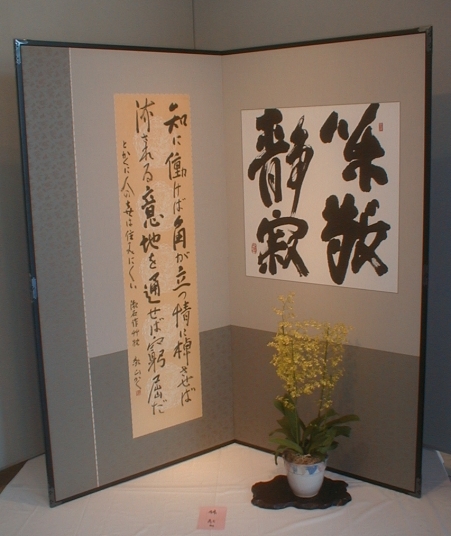 和敬
静寂
知に働けば角が立つ情に棹させば
流される意地を通せば窮屈だ
とかくに人の世は住みにくい